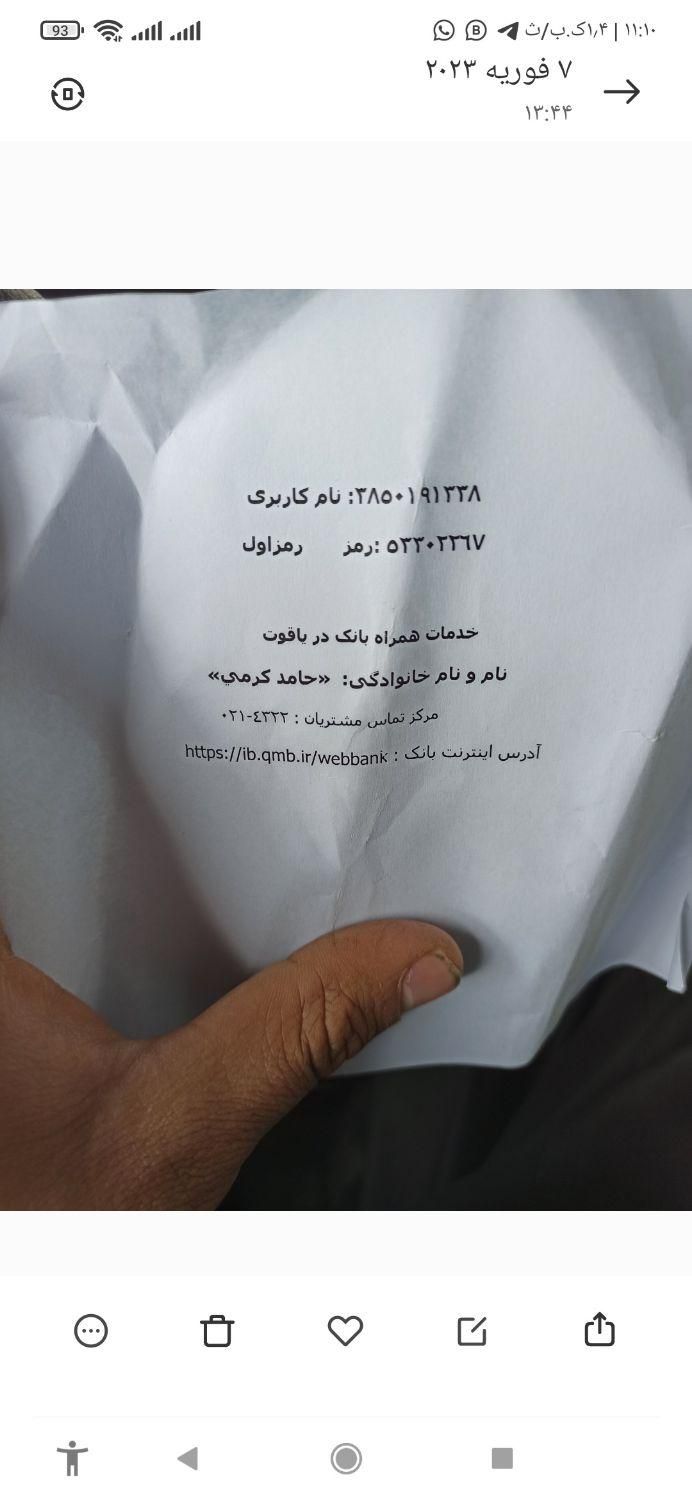 93
۱۱:۱۰ | ۱٫۴ک.ب/ث
۷ فوریه ۲۰۲۳
۱۳:۴۴
نام کاربری :٣٨٥٠١٩١٣٣٨
رمزاول رمز: ٥٣٣٠٢٢٦٧
خدمات همراه بانک در یاقوت
نام و نام خانوادگی: «حامد کرمي»
مرکز تماس مشتریان : ٠٢١-٤٣٢٢
آدرس اینترنت بانک : https://ib.qmb.ir/webbank